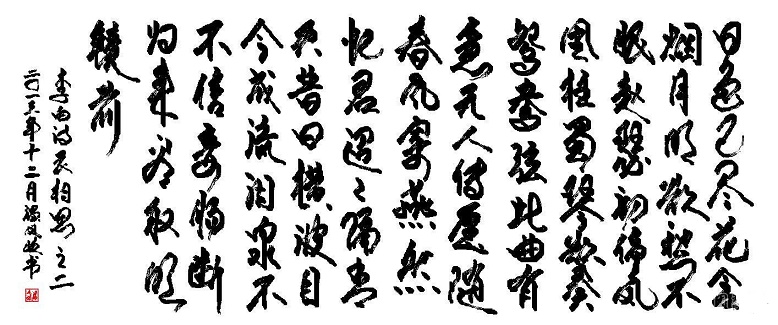 日色已尽花含
烟月明欲愁不
眠赵瑟初停凤
凰柱蜀琴欲奏
鸳鸯弦此曲有
意无人传愿随
春风寄燕然
忆君迢〻隔青
天昔日横波目
今成流泪泉不
不信妾肠断
归来看取明
镜前
李白诗长相思之二
年十二月书